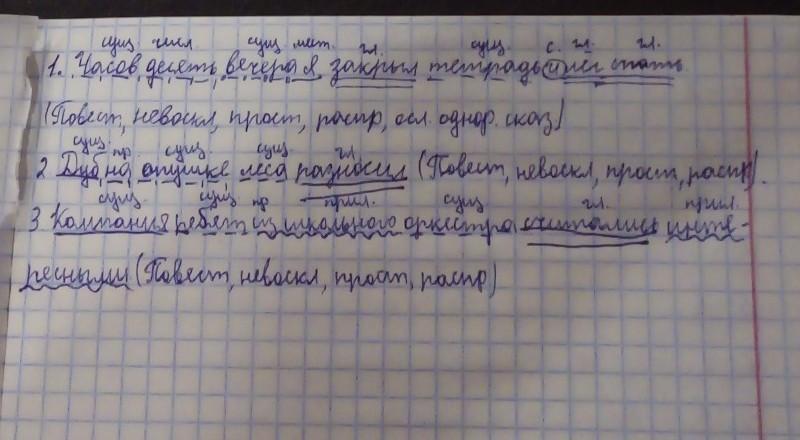 сущ. числ. сущ. мест. гл. сущ. с. гл. гл.
1. Часов десять вечера я закрыл тетрадь и лег спать
(Повест, невоскл, прост, распр, осл. однор. сказ)
сущ. пр сущ. сущ. гл.
2 Дуб на опушке леса разносил (Повест, невоскл, прост, распр).
сущ. сущ. пр прил. сущ гл. прил.
3 Компания ребят из школьного оркестра считались инте-
ресными (Повест, невоскл, прост, распр)